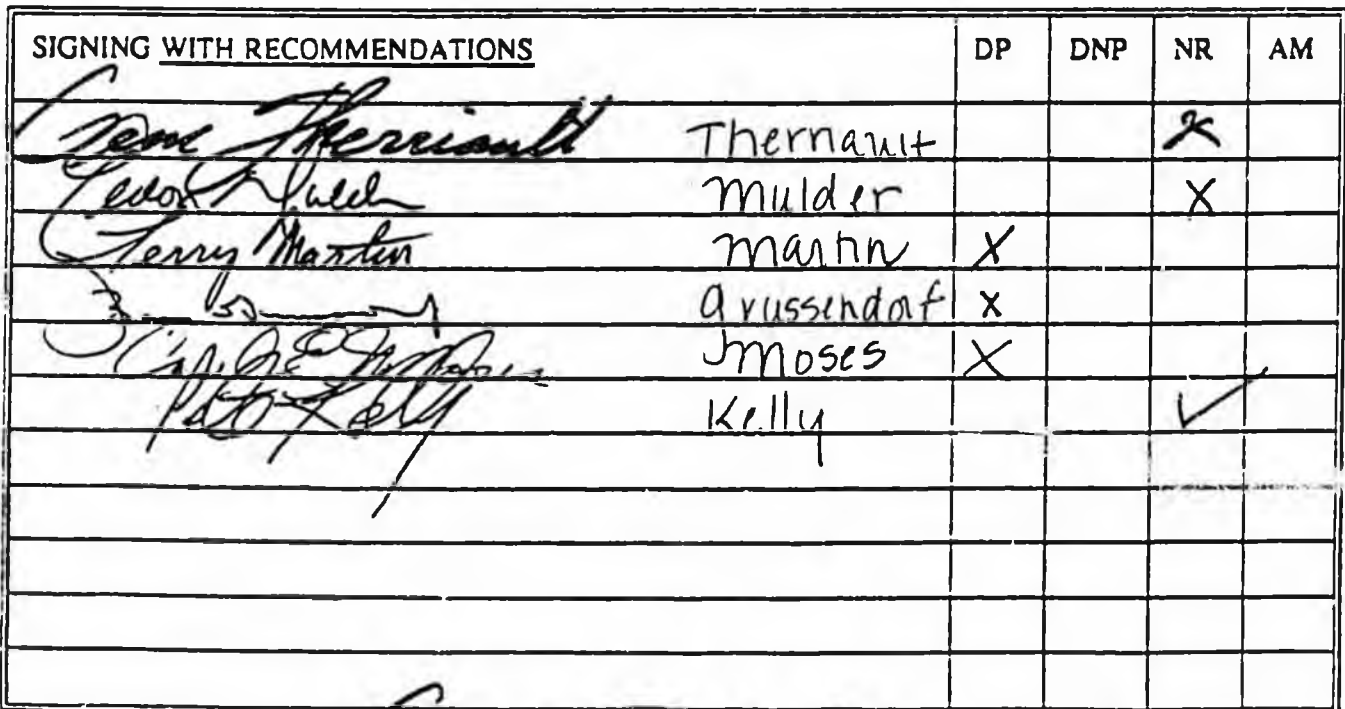 SIGNING WITH RECOMMENDATIONS DP DNP NR AM
Gene Therriault Therriault X
Mulder X
Terry Martin Martin X
Grussendorf X
Moses X
Pete Kelly Kelly ✓